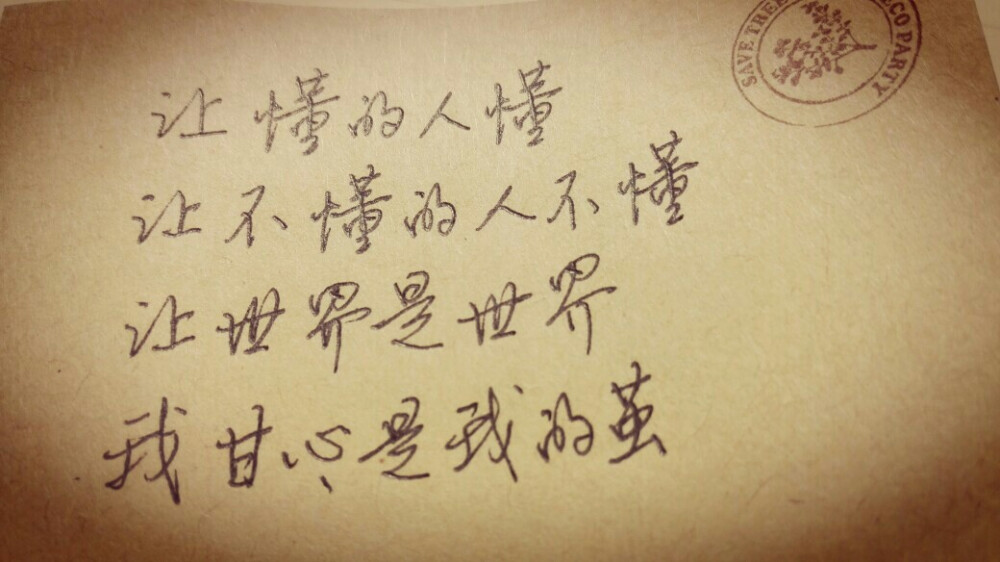 SAVE TREE ECO PARTY
让懂的人懂
让不懂的人不懂
让世界是世界
我甘心是我的茧